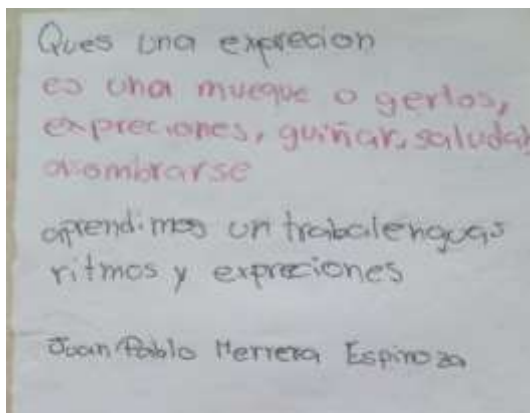 Ques una exprecion
es una mueque o gertos,
expreciones, guiñar, saludar
asombrarse
aprendimos un trabalenguas
ritmos y expreciones
Juan Pablo Herrera Espinoza